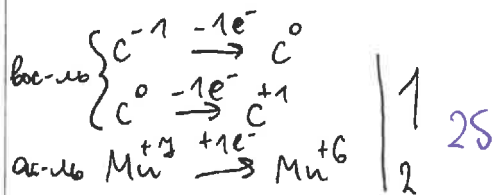 вос-ль { C⁻¹ –1e⁻→ C⁰
C⁰ –1e⁻→ C⁺¹ | 1
ок-ль Mn⁺⁷ +1e⁻→ Mn⁺⁶ | 2
25